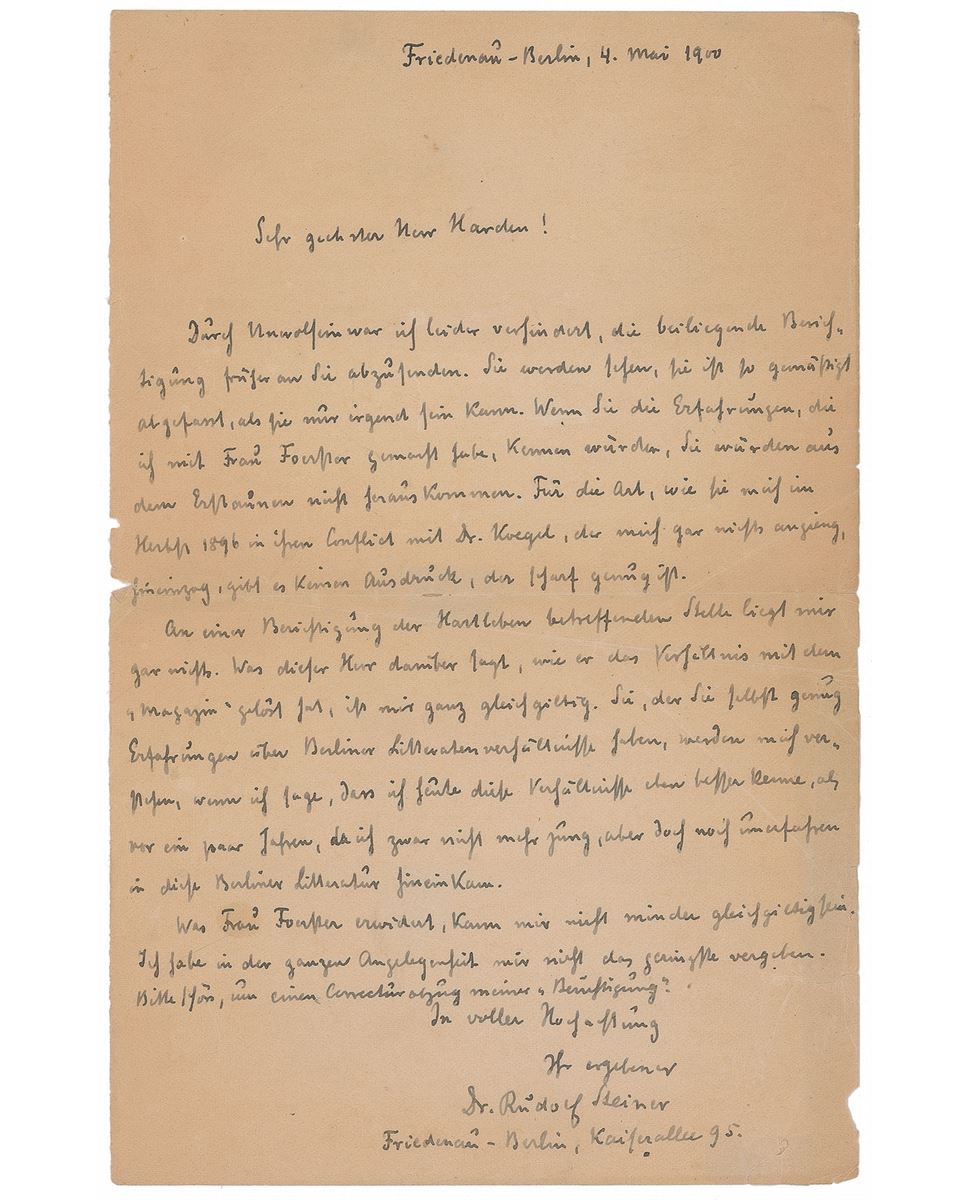 Friedenau-Berlin, 4. Mai 1900
Sehr geehrter Herr Harden!
Durch Unwolsein war ich leider verhindert, die beiliegende Berich-
tigung früher an Sie abzusenden. Sie werden sehen, sie ist so gemäßigt
abgefasst, als sie nur irgend sein kann. Wenn Sie die Erfahrungen, die
ich mit Frau Foerster gemacht habe, kennen würden, Sie würden aus
dem Erstaunen nicht herauskommen. Für die Art, wie sie mich im
Herbst 1896 in ihren Conflict mit Dr. Koegel, der mich gar nichts angieng,
hineinzog, gibt es keinen Ausdruck, der scharf genug ist.
An einer Berichtigung der Hartleben betreffenden Stelle liegt mir
gar nichts. Was dieser Herr darüber sagt, wie er das Verhältnis mit dem
„Magazin“ gelöst hat, ist mir ganz gleichgiltig. Sie, der Sie selbst genug
Erfahrungen über Berliner Litteratenverhältnisse haben, werden mich ver-
stehen, wenn ich sage, dass ich heute diese Verhältnisse eben besser kenne, als
vor ein paar Jahren, da ich zwar nicht mehr jung, aber doch noch unerfahren
in diese Berliner Litteratur hineinkam.
Was Frau Foerster erwidert, kann mir nicht minder gleichgiltig sein.
Ich habe in der ganzen Angelegenheit mir nicht das geringste vergeben.
Bitte, um einen Correcturabzug meiner „Berichtigung“.
In voller Hochachtung
Ihr ergebener
Dr. Rudolf Steiner
Friedenau-Berlin, Kaiserallee 95.